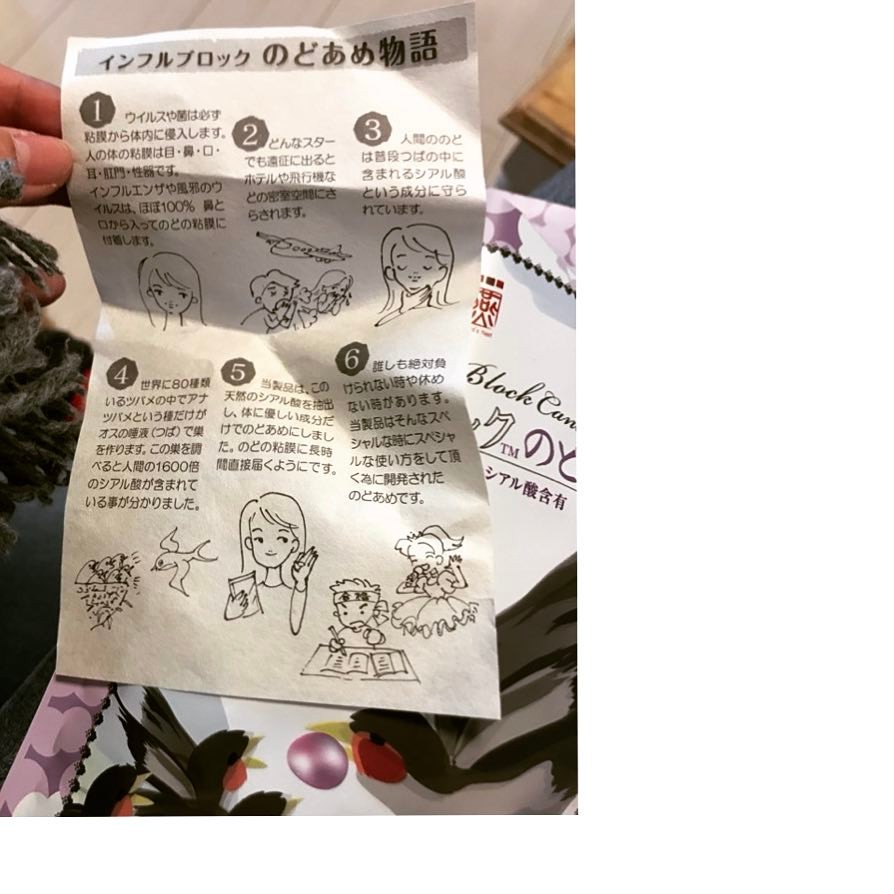 インフルブロック のどあめ物語
1 ウイルスや菌は必ず
粘膜から体内に侵入します。
人の体の粘膜は目・鼻・口・
耳・肛門・性器です。
インフルエンザや風邪のウ
イルスは、ほぼ100% 鼻と
口から入ってのどの粘膜に
付着します。
2 どんなスター
でも遠征に出ると
ホテルや飛行機な
どの密室空間にさ
らされます。
3 人間ののど
は普段つばの中に
含まれるシアル酸
という成分に守ら
れています。
4 世界に80種類
いるツバメの中でアナ
ツバメという種だけが
オスの唾液(つば)で巣
を作ります。この巣を調
べると人間の1600倍
のシアル酸が含まれて
いる事が分かりました。
5 当製品は、この
天然のシアル酸を抽出
し、体に優しい成分だ
けでのどあめにしまし
た。のどの粘膜に長時
間直接届くようにです。
6 誰しも絶対負
けられない時や休め
ない時があります。
当製品はそんなスペ
シャルな時にスペシャ
ルな使い方をして頂
く為に開発された
のどあめです。
合格
Block Can
ク™のど
シアル酸含有